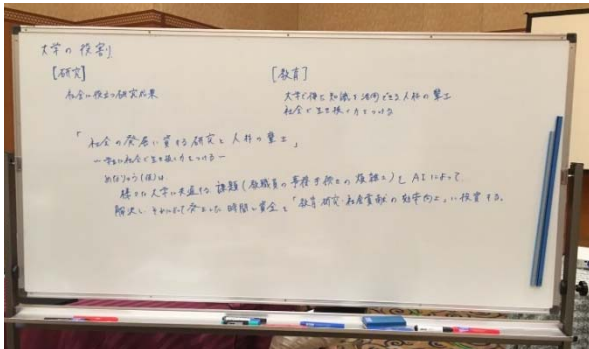 大学の役割
[研究]
社会に役立つ研究成果
[教育]
大学で得た知識を活用できる人材の輩出
社会で生き抜く力をつける
「社会の発展に資する研究と人材の輩出」
ー学生に社会で生き抜く力をつけるー
(仮)は
様々な大学に共通する課題(教職員の事務手続きの複雑さ)をAIによって
解決し、それによって発生した時間と資金を「教育・研究・社会貢献の効率向上」に投資する。